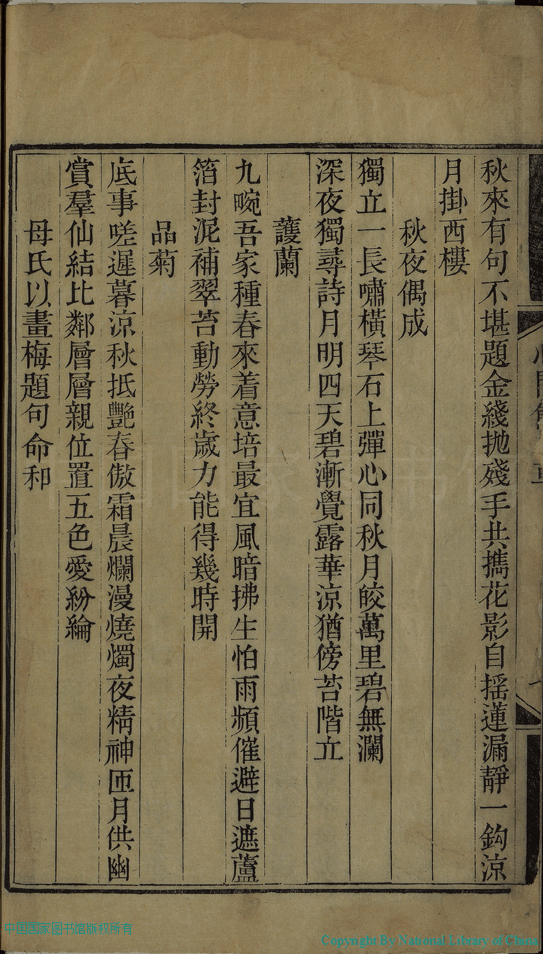 秋來有句不堪題金綫拋殘手共攜花影自摇蓮漏靜一鈎涼
月掛西樓
秋夜偶成
獨立一長嘯橫琴石上彈心同秋月皎萬里碧無瀾
深夜獨尋詩月明四天碧漸覺露華涼猶傍苔階立
護蘭
九畹吾家種春來着意培最宜風暗拂生怕雨頻催避日遮蘆
箔封泥補翠苔動勞終歲力能得幾時開
品菊
底事嗟遲暮涼秋抵艷春傲霜晨爛漫燒燭夜精神匝月供幽
賞羣仙結比鄰層層親位置五色愛紛綸
母氏以畫梅題句命和
中国国家图书馆版权所有
Copyright By National Library of China